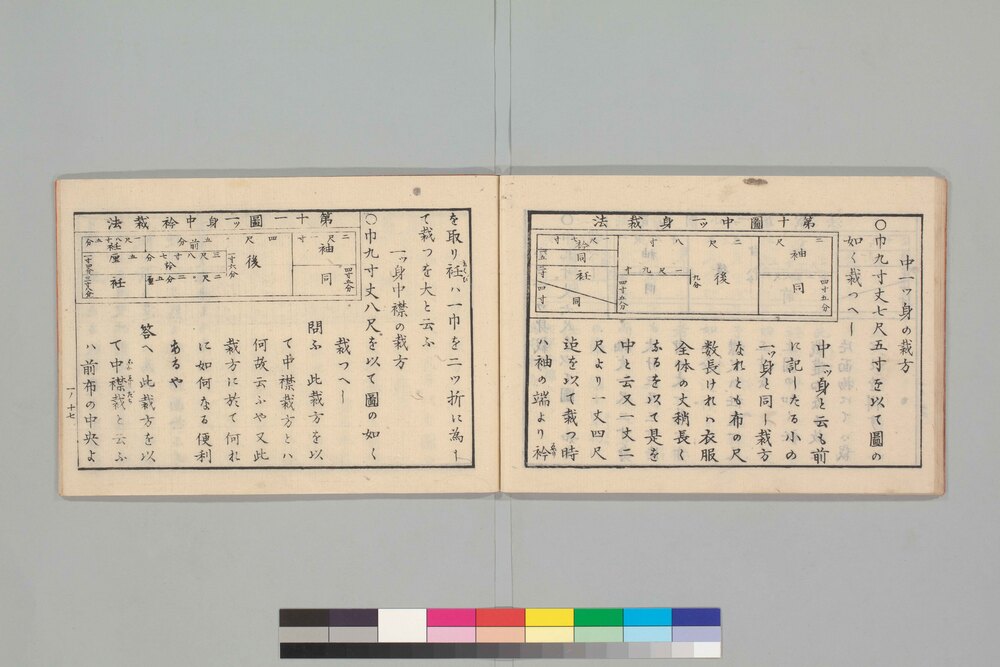 中一ッ身の裁方
〇巾九寸丈七尺五寸を以て圖の
如く裁つへし
第十圖中一ッ身裁法
二尺
袖
同
四寸五分
二尺八寸
後
九分
一尺九寸
四寸五分
衿
同
衽
同
四寸
中一ッ身と云も前
に記したる小の
一ッ身と同し裁方
なれとも布の尺
数長けれハ衣服
全体の丈稍長く
なるを以て是を
中と云又一丈二
尺より一丈四尺
迄を以て裁つ時
ハ袖の端より衿
を取り衽ハ一巾を二ッ折に為し
て裁つを大と云ふ
一ッ身中襟の裁方
〇巾九寸丈八尺を以て圖の如く
裁つへし
第十一圖一ッ身中衿裁法
二尺一寸
袖
同
四寸五分
四尺一寸
後
一寸六分
前
衽
衽
問ふ 此裁方を以
て中襟裁方とハ
何故云ふや又此
裁方に於て何れ
に如何なる便利
あるや
答へ 此裁方を以
て中襟裁と云ふ
ハ前布の中央よ
一ノ十七